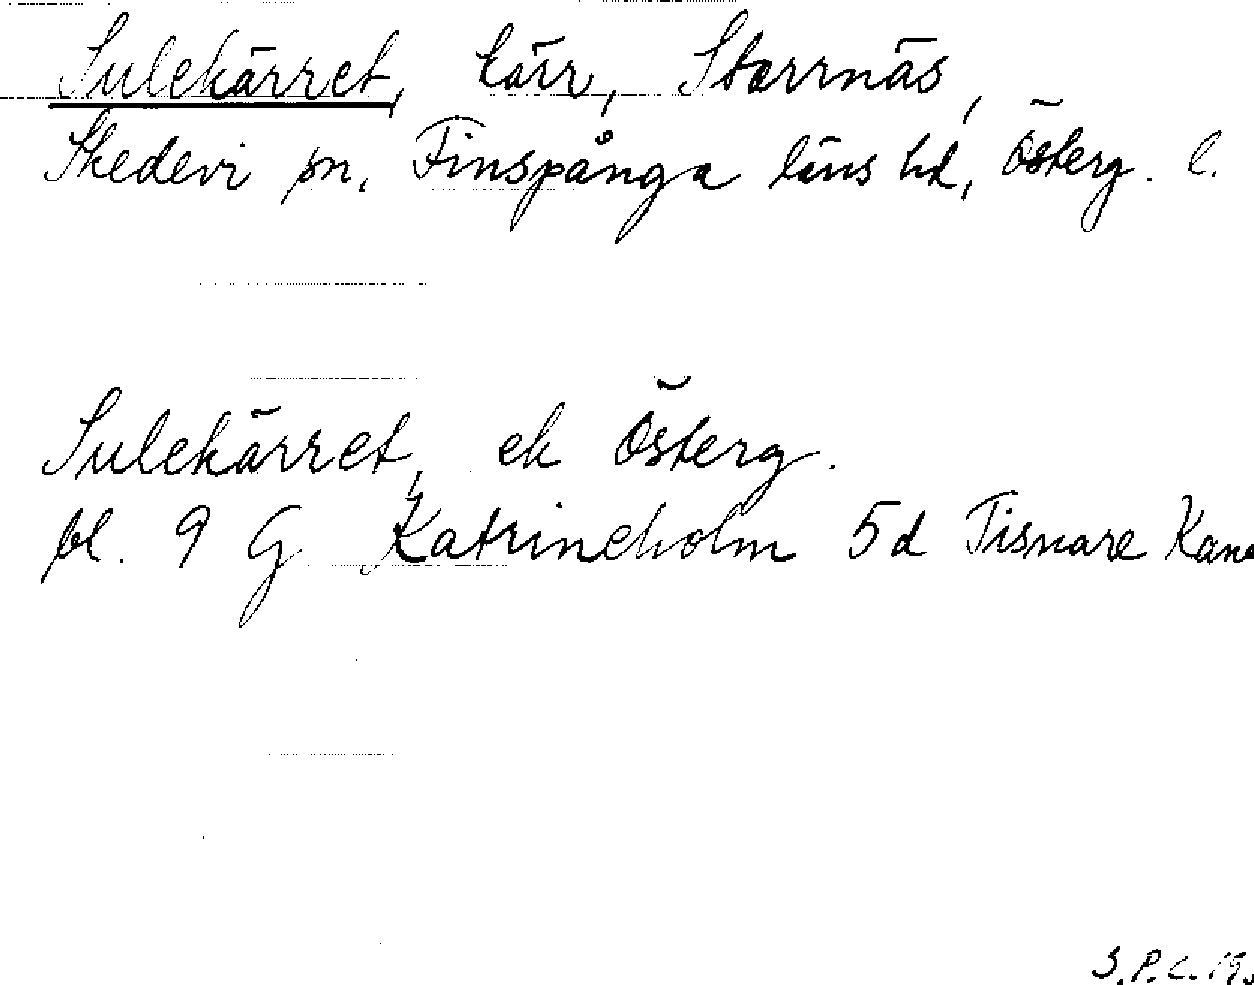 Sulekärret, kärr, Starrnäs,
Skedevi sn, Finspånga läns hd, Österg. l.
Sulekärret, ek Österg.
bl. 9 G Katrineholm 5d Tisnare Kana
S.P.C. 19